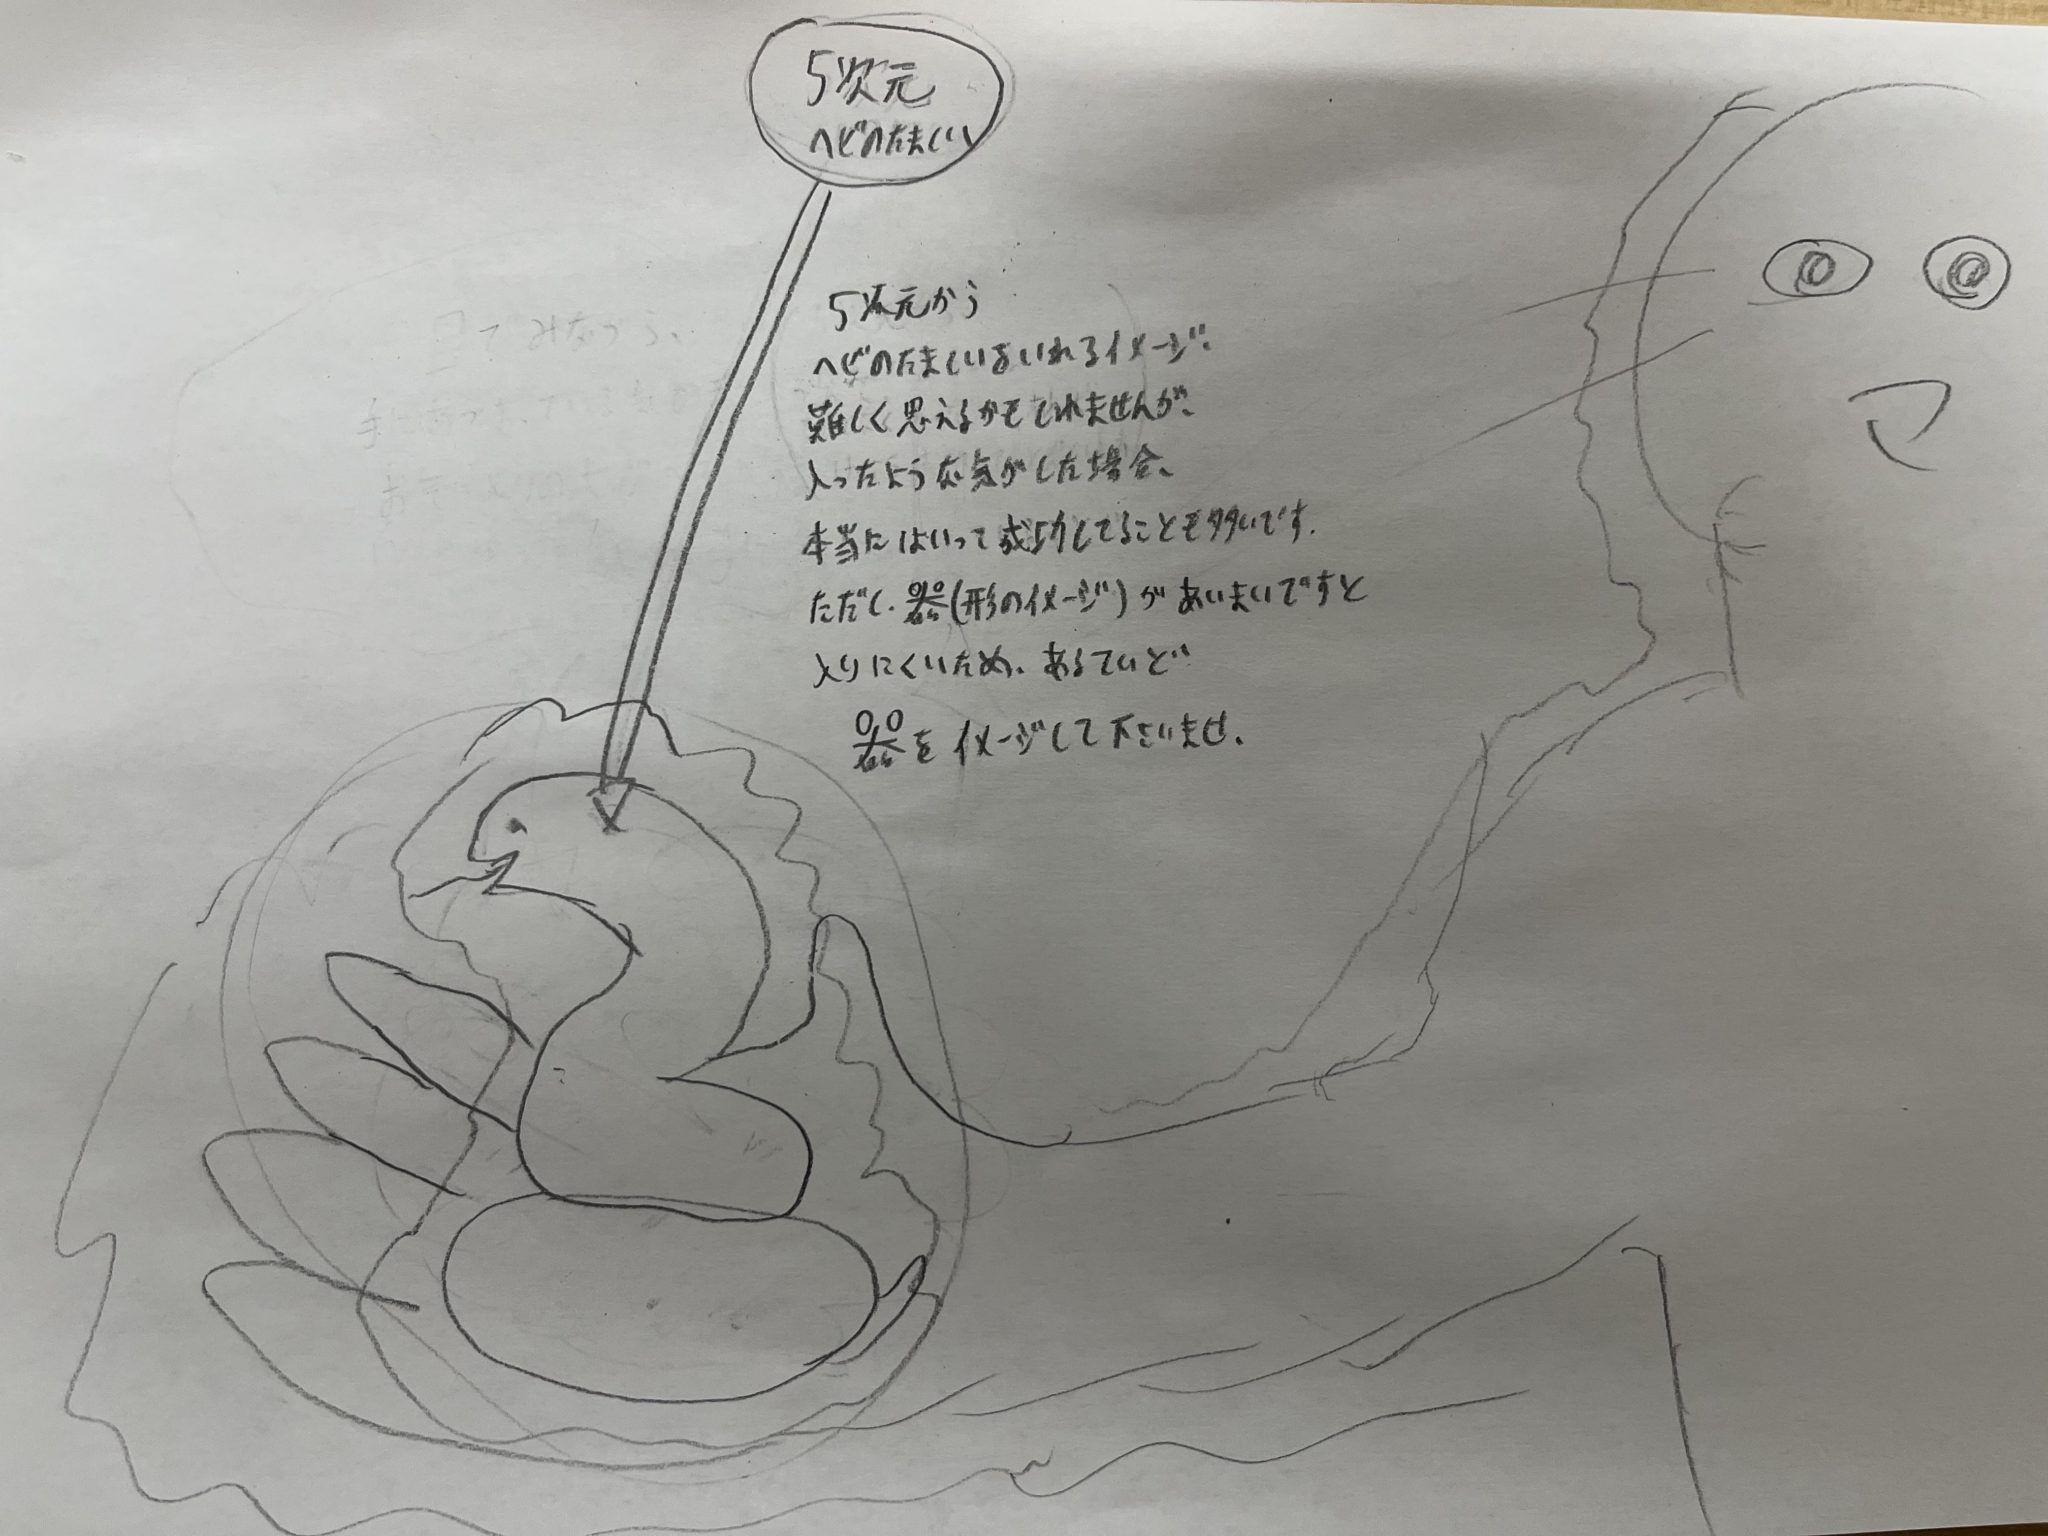 5次元
ヘビのたましい
5次元から
ヘビのたましいをいれるイメージ、
難しく思えるかもしれませんが、
入ったような気がした場合、
本当にはいって成功してることも多いです.
ただし、器(形のイメージ)があいまいですと
入りにくいため、あるていど
器をイメージして下さいませ、